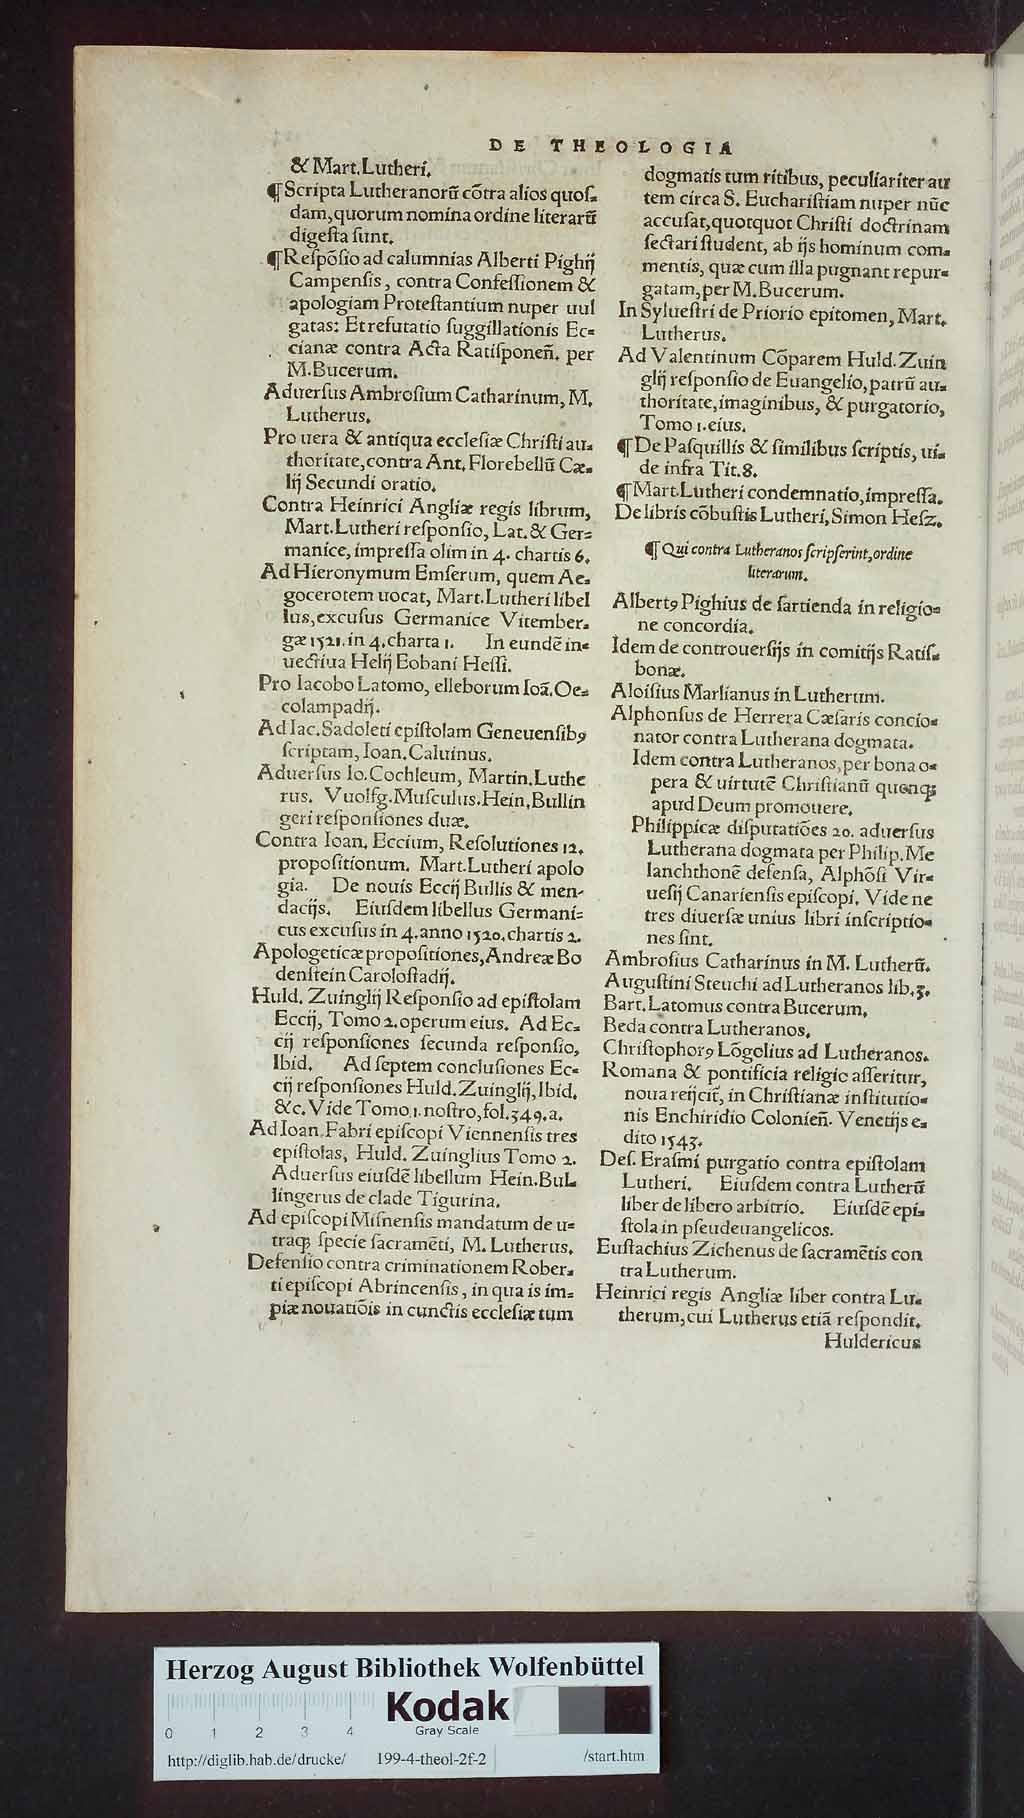 DE THEOLOGIA
& Mart.Lutheri.
¶Scripta Lutheranorũ cõtra alios quoſ-
dam,quorum nomina ordine literarũ
digeſta ſunt.
¶Reſpõſio ad calumnias Alberti Pighij
Campenſis, contra Confeſſionem &
apologiam Proteſtantium nuper uul
gatas: Et refutatio ſuggillationis Ec-
cianæ contra Acta Ratiſponeñ. per
M.Bucerum.
Aduerſus Ambroſium Catharinum, M.
Lutherus.
Pro uera & antiqua eccleſiæ Chriſti au-
thoritate,contra Ant.Florebellũ Cæ-
lij Secundi oratio.
Contra Heinrici Angliæ regis librum,
Mart.Lutheri reſponſio, Lat. & Ger-
manice, impreſſa olim in 4. chartis 6.
Ad Hieronymum Emſerum, quem Ae-
gocerotem uocat, Mart.Lutheri libel
lus,excuſus Germanice Vitember-
gæ 1521.in 4.charta 1. In eundẽ in-
uectiua Helij Eobani Heſſi.
Pro Iacobo Latomo, elleborum Ioã.Oe-
colampadij.
Ad Iac.Sadoleti epiſtolam Geneuenſibꝰ
ſcriptam, Ioan.Caluinus.
Aduerſus Io.Cochleum, Martin.Luthe
rus. Vuolfg.Muſculus.Hein.Bullin
geri reſponſiones duæ.
Contra Ioan. Eccium, Reſolutiones 12.
propoſitionum. Mart.Lutheri apolo
gia. De nouis Eccij Bullis & men-
dacijs. Eiuſdem libellus Germani-
cus excuſus in 4.anno 1520.chartis 2.
Apologeticæ propoſitiones,Andreæ Bo
denſtein Caroloſtadij.
Huld. Zuinglij Reſponſio ad epiſtolam
Eccij, Tomo 2.operum eius. Ad Ec-
cij reſponſiones ſecunda reſponſio,
Ibid. Ad ſeptem concluſiones Ec-
cij reſponſiones Huld.Zuinglij,Ibid.
&c.Vide Tomo 1.noſtro,fol.349.a.
Ad Ioan.Fabri epiſcopi Viennenſis tres
epiſtolas, Huld. Zuinglius Tomo 2.
Aduerſus eiuſdẽ libellum Hein.Bul-
lingerus de clade Tigurina.
Ad epiſcopi Miſnenſis mandatum de u-
traqꝫ ſpecie ſacramẽti, M. Lutherus.
Defenſio contra criminationem Rober-
ti epiſcopi Abrincenſis, in qua is im-
piæ nouatiõis in cunctis eccleſiæ tum
dogmatis tum ritibus, peculiariter au
tem circa S. Euchariſtiam nuper nũc
accuſat,quotquot Chriſti doctrinam
ſectari ſtudent, ab ijs hominum com-
mentis, quæ cum illa pugnant repur-
gatam,per M.Bucerum.
In Sylueſtri de Priorio epitomen, Mart.
Lutherus.
Ad Valentinum Cõparem Huld.Zuin
glij reſponſio de Euangelio,patrũ au-
thoritate,imaginibus, & purgatorio,
Tomo 1.eius.
¶De Paſquillis & ſimilibus ſcriptis, ui-
de infra Tit.8.
¶Mart.Lutheri condemnatio,impreſſa.
De libris cõbuſtis Lutheri, Simon Heſz.
¶ Qui contra Lutheranos ſcripſerint,ordine
literarum.
Albertꝰ Pighius de ſartienda in religio-
ne concordia.
Idem de controuerſijs in comitijs Ratiſ-
bonæ.
Aloiſius Marlianus in Lutherum.
Alphonſus de Herrera Cæſaris concio-
nator contra Lutherana dogmata.
Idem contra Lutheranos,per bona o-
pera & uirtutẽ Chriſtianũ quenqꝫ
apud Deum promouere.
Philippicæ diſputatiões 20. aduerſus
Lutherana dogmata per Philip.Me
lanchthonẽ defenſa, Alphõſi Vir-
ueſij Canarienſis epiſcopi. Vide ne
tres diuerſæ unius libri inſcriptio-
nes ſint.
Ambroſius Catharinus in M. Lutherũ.
Auguſtini Steuchi ad Lutheranos lib.3.
Bart.Latomus contra Bucerum.
Beda contra Lutheranos.
Chriſtophorꝰ Lõgolius ad Lutheranos.
Romana & pontificia religio aſſeritur,
noua reijcit̃, in Chriſtianæ inſtitutio-
nis Enchiridio Colonieñ. Venetijs e-
dito 1543.
Deſ. Eraſmi purgatio contra epiſtolam
Lutheri. Eiuſdem contra Lutherũ
liber de libero arbitrio. Eiuſdẽ epi-
ſtola in pſeudeuangelicos.
Euſtachius Zichenus de ſacramẽtis con
tra Lutherum.
Heinrici regis Angliæ liber contra Lu-
therum,cui Lutherus etiã reſpondit.
Huldericus
Herzog August Bibliothek Wolfenbüttel
Kodak
Gray Scale
0 1 2 3 4
http://diglib.hab.de/drucke/ 199-4-theol-2f-2 /start.htm